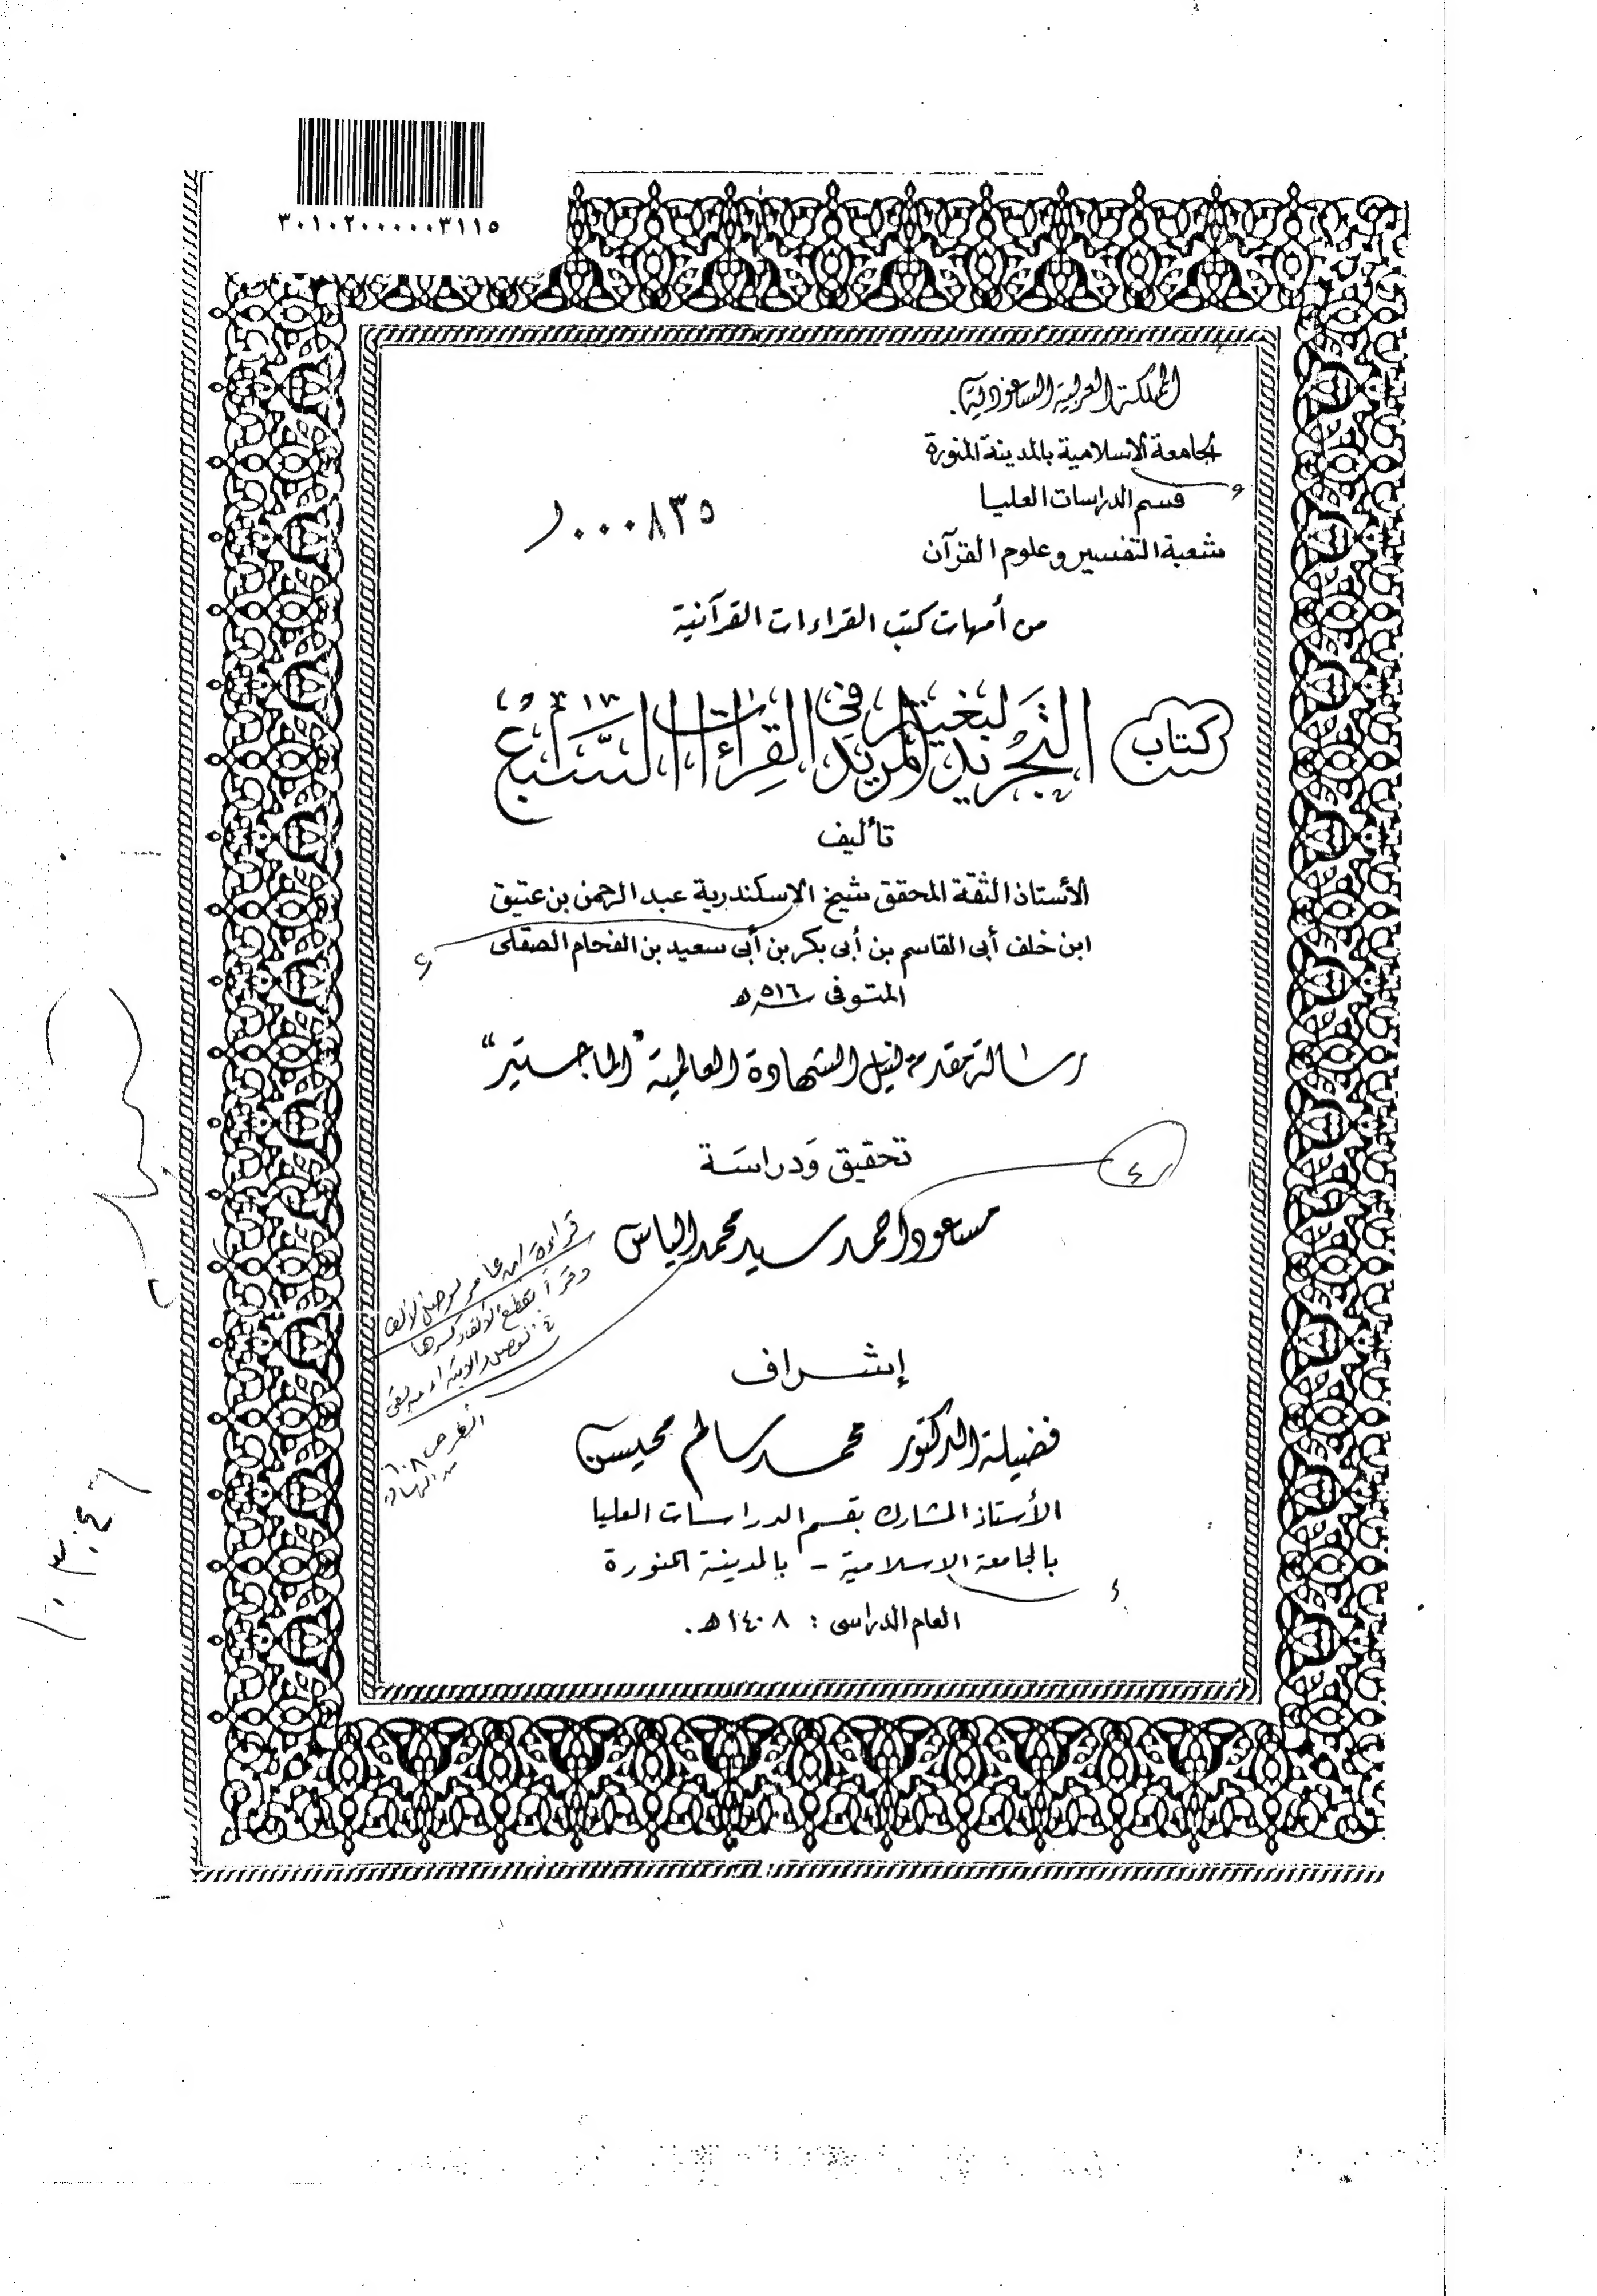 ٣٠١٠٢٠٠٠٠٠٠٣١١٥
المملكة العربية السعودية
الجامعة الاسلامية بالمدينة المنورة
قسم الدراسات العليا
شعبة التفسير وعلوم القرآن
٠٠٠٨٣٥
من أمهات كتب القراءات القرآنية
كتاب
التجريد لبغية المريد في القراءات السبع
تأليف
الأستاذ الثقة المحقق شيخ الاسكندرية عبد الرحمن بن عتيق
ابن خلف أبى القاسم بن أبى بكر بن أبى سعيد بن الفحام الصقلى
المتوفى سنة ٥١٦ هـ
رسالة مقدمة لنيل الشهادة العالمية "الماجستير"
تحقيق وَدراسَة
٤
مسعود احمد سيد محمد الياس
قراءة ابن عامر بوصل الألف
إشراف
فضيلة الدكتور محمد سالم محيسن
الأستاذ المشارك بقسم الدراسات العليا
بالجامعة الإسلامية - بالمدينة المنورة
العام الدراسى : ١٤٠٨ هـ.